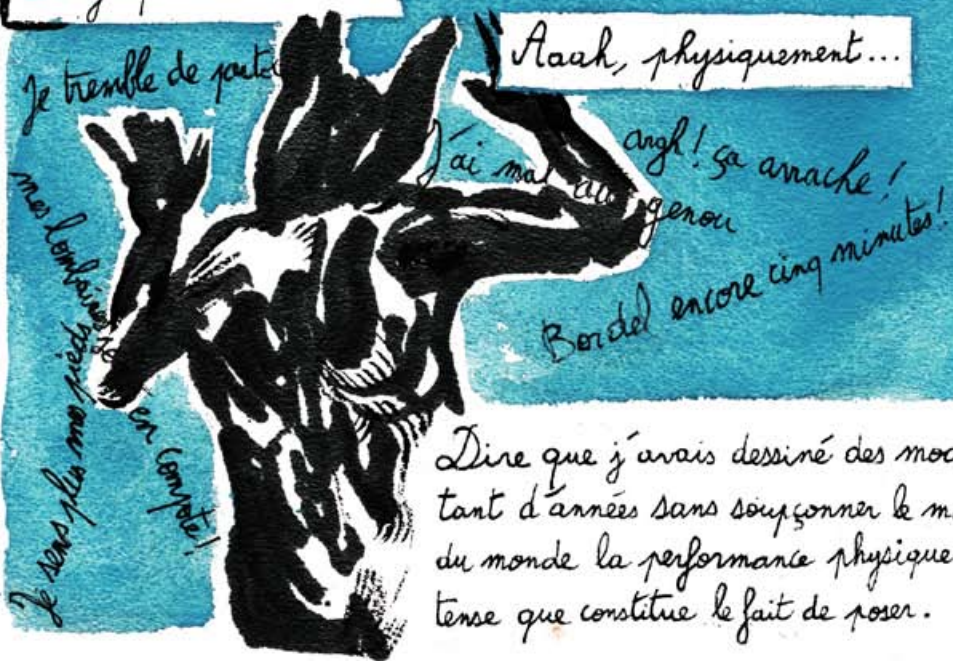 Aaah, physiquement...
Je tremble de partout
J'ai mal au genou
argh! ça arrache!
Bordel encore cinq minutes!
mes lombaires
en compote!
Je sens plus mes pieds
Dire que j'avais dessiné des mod
tant d'années sans soupçonner le m
du monde la performance physique
tense que constitue le fait de poser.